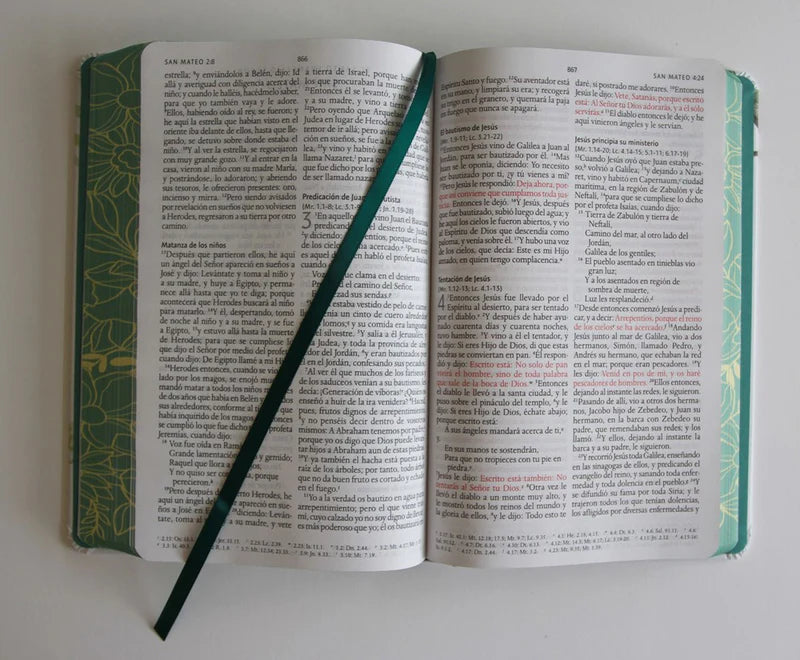 SAN MATEO 2:8
866
estrella; ⁸y enviándolos a Belén, dijo: Id
allá y averiguad con diligencia acerca del
niño; y cuando le halléis, hacédmelo saber,
para que yo también vaya y le adore.
⁹Ellos, habiendo oído al rey, se fueron; y
he aquí la estrella que habían visto en el
oriente iba delante de ellos, hasta que lle-
gando, se detuvo sobre donde estaba el
niño. ¹⁰Y al ver la estrella, se regocijaron
con muy grande gozo. ¹¹Y al entrar en la
casa, vieron al niño con su madre María,
y postrándose, lo adoraron; y abriendo
sus tesoros, le ofrecieron presentes: oro,
incienso y mirra. ¹²Pero siendo avisados
por revelación en sueños que no volviesen
a Herodes, regresaron a su tierra por otro
camino.
Matanza de los niños
¹³Después que partieron ellos, he aquí
un ángel del Señor apareció en sueños a
José y dijo: Levántate y toma al niño y
a su madre, y huye a Egipto, y permane-
ce allá hasta que yo te diga; porque
acontecerá que Herodes buscará al niño
para matarlo. ¹⁴Y él, despertando, tomó
de noche al niño y a su madre, y se fue
a Egipto, ¹⁵y estuvo allá hasta la muerte
de Herodes; para que se cumpliese lo
que dijo el Señor por medio del profeta,
cuando dijo: De Egipto llamé a mi
¹⁶Herodes entonces, cuando se vio
lado por los magos, se enojó
mandó matar a todos los niños
de dos años que había en Belén
sus alrededores, conforme al
había inquirido de los magos
tonces se cumplió lo que
Jeremías, cuando dijo:
¹⁸ Voz fue oída en Ramá
Grande lamentación, y gemido;
Raquel que llora a
Y no quiso ser porque
perecieron.
¹⁹Pero después de Herodes, he
aquí un ángel apareció en sue-
ños a José en diciendo: Leván-
tate, toma al a su madre, y vete
a tierra de Israel, porque han
los que procuraban la muerte
²¹Entonces él se levantó, y
y a su madre, y vino a tierra
²²Pero oyendo que Arquelao
Judea en lugar de Herodes
temor de ir allá; pero
ción en sueños, se fue a la
lilea, ²³y vino y habitó
llama Nazaret, para
que fue dicho por los
de ser llamado
Predicación de Juan Bautista
(Mr. 1.1-8; Lc. 3.1-9 Jn. 1.19-28)
3 ¹En aquellos vino Juan el Bautista
predicando el desierto de Judea,
²y diciendo: porque el reino
de los cielos acercado. ³Pues
es aquel de habló el profeta Isaías,
cuando
Voz que clama en el desierto:
el camino del Señor,
Enderezad sus sendas.
⁴Y Juan estaba vestido de pelo de
tenía un cinto de cuero alrededor
lomos; y su comida era langostas
silvestre. ⁵Y salía a él
Judea, y toda la provincia de
dor del Jordán, ⁶y eran bautizados
en el Jordán, confesando sus pecados.
⁷Al ver él que muchos de los fariseos
los saduceos venían a su bautismo,
decía: ¡Generación de víboras! ¿Quién
enseñó a huir de la ira venidera? ⁸Haced,
pues, frutos dignos de arrepentimiento,
⁹y no penséis decir dentro de vosotros
mismos: A Abraham tenemos por padre;
porque yo os digo que Dios puede levan-
tar hijos a Abraham aun de estas piedras.
¹⁰Y ya también el hacha está puesta a la
raíz de los árboles; por tanto, todo árbol
que no da buen fruto es cortado y echado
en el fuego.
¹¹Yo a la verdad os bautizo en agua para
arrepentimiento; pero el que viene tras
mí, cuyo calzado yo no soy digno de llevar,
es más poderoso que yo; él os bautizará en
867
SAN MATEO 4:24
Espíritu Santo y fuego. ¹²Su aventador está
en su mano, y limpiará su era; y recogerá
su trigo en el granero, y quemará la paja
en fuego que nunca se apagará.
El bautismo de Jesús
(Mr. 1.9-11; Lc. 3.21-22)
¹³Entonces Jesús vino de Galilea a Juan al
Jordán, para ser bautizado por él. ¹⁴Mas
Juan se le oponía, diciendo: Yo necesito
ser bautizado por ti, ¿y tú vienes a mí?
¹⁵Pero Jesús le respondió: Deja ahora, por-
que así conviene que cumplamos toda jus-
ticia. Entonces le dejó. ¹⁶Y Jesús, después
que fue bautizado, subió luego del agua; y he
aquí los cielos le fueron abiertos, y vio
al Espíritu de Dios que descendía como
paloma, y venía sobre él. ¹⁷Y hubo una voz
de los cielos, que decía: Este es mi Hijo
amado, en quien tengo complacencia.
Tentación de Jesús
(Mr. 1.12-13; Lc. 4.1-13)
4 ¹Entonces Jesús fue llevado por el
Espíritu al desierto, para ser tentado
por el diablo. ²Y después de haber ayu-
nado cuarenta días y cuarenta noches,
tuvo hambre. ³Y vino a él el tentador, y
le dijo: Si eres Hijo de Dios, di que estas
piedras se conviertan en pan. ⁴Él respon-
dió y dijo: Escrito está: No solo de pan
vivirá el hombre, sino de toda palabra
que sale de la boca de Dios. ⁵Entonces
el diablo le llevó a la santa ciudad, y le
puso sobre el pináculo del templo, ⁶y le
dijo: Si eres Hijo de Dios, échate abajo;
porque escrito está:
A sus ángeles mandará acerca de ti,
y,
En sus manos te sostendrán,
Para que no tropieces con tu pie en
piedra.
⁷Jesús le dijo: Escrito está también: No
tentarás al Señor tu Dios. ⁸Otra vez le
llevó el diablo a un monte muy alto, y
le mostró todos los reinos del mundo y
la gloria de ellos, ⁹y le dijo: Todo esto te
daré, si postrado me adorares. ¹⁰Entonces
Jesús le dijo: Vete, Satanás, porque escrito
está: Al Señor tu Dios adorarás, y a él solo
servirás. ¹¹El diablo entonces le dejó; y he
aquí vinieron ángeles y le servían.
Jesús principia su ministerio
(Mr. 1.14-20; Lc. 4.14-15; 5.1-11; 6.17-19)
¹²Cuando Jesús oyó que Juan estaba pre-
so, volvió a Galilea; ¹³y dejando a Naza-
ret, vino y habitó en Capernaum, ciudad
marítima, en la región de Zabulón y de
Neftalí, ¹⁴para que se cumpliese lo dicho
por el profeta Isaías, cuando dijo:
¹⁵ Tierra de Zabulón y tierra de
Neftalí,
Camino del mar, al otro lado del
Jordán,
Galilea de los gentiles;
¹⁶ El pueblo asentado en tinieblas vio
gran luz;
Y a los asentados en región de
sombra de muerte,
Luz les resplandeció.
¹⁷Desde entonces comenzó Jesús a predi-
car, y a decir: Arrepentíos, porque el reino
de los cielos se ha acercado. ¹⁸Andando
Jesús junto al mar de Galilea, vio a dos
hermanos, Simón, llamado Pedro, y
Andrés su hermano, que echaban la red
en el mar; porque eran pescadores. ¹⁹Y
les dijo: Venid en pos de mí, y os haré
pescadores de hombres. ²⁰Ellos entonces,
dejando al instante las redes, le siguieron.
²¹Pasando de allí, vio a otros dos herma-
nos, Jacobo hijo de Zebedeo, y Juan su
hermano, en la barca con Zebedeo su
padre, que remendaban sus redes; y los
llamó. ²²Y ellos, dejando al instante la
barca y a su padre, le siguieron.
²³Y recorrió Jesús toda Galilea, enseñando
en las sinagogas de ellos, y predicando el
evangelio del reino, y sanando toda enfer-
medad y toda dolencia en el pueblo. ²⁴Y
se difundió su fama por toda Siria; y le
trajeron todos los que tenían dolencias,
los afligidos por diversas enfermedades y